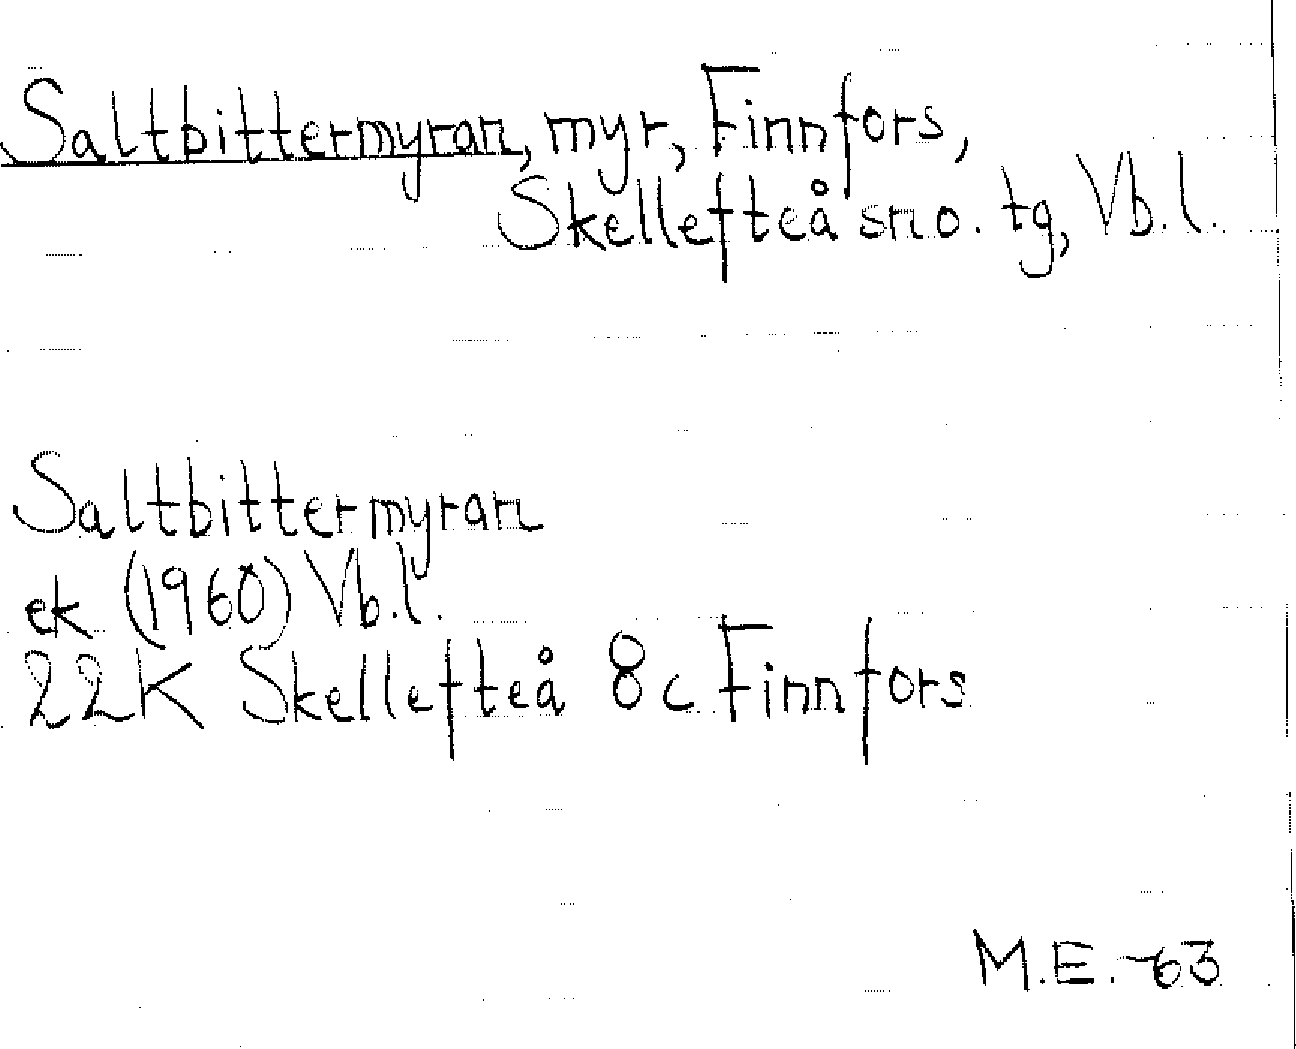 Saltbittermyran, myr, Finnfors,
Skellefteå sn o. tg, Vb.l.
Saltbittermyran
ek (1960) Vb.l.
22K Skellefteå 8c Finnfors
M.E.-63